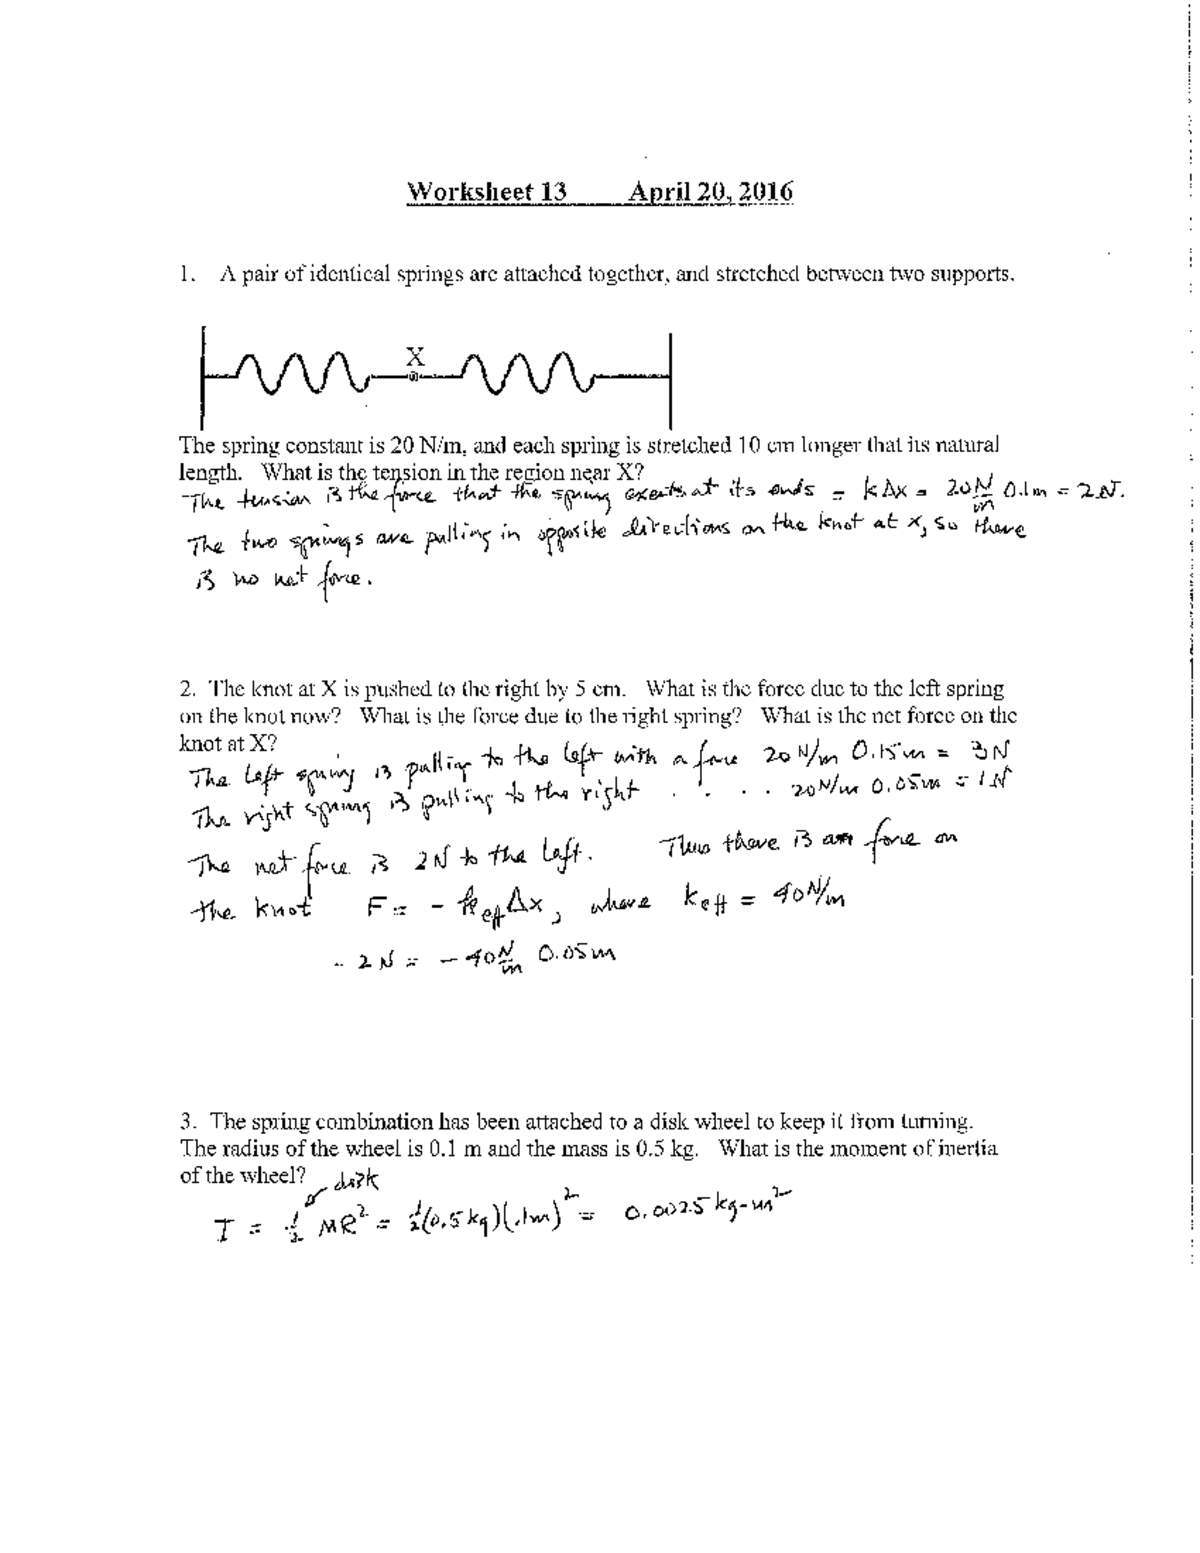 Worksheet 13 April 20, 2016
1. A pair of identical springs are attached together, and stretched between two supports.
X
The spring constant is 20 N/m, and each spring is stretched 10 cm longer that its natural
length. What is the tension in the region near X?
The tension is the force that the spring exerts at its ends = kΔx = 20 N/m 0.1m = 2N.
The two springs are pulling in opposite directions on the knot at x, so there
is no net force.
2. The knot at X is pushed to the right by 5 cm. What is the force due to the left spring
on the knot now? What is the force due to the right spring? What is the net force on the
knot at X?
The left spring is pulling to the left with a force 20 N/m 0.15m = 3N
The right spring is pulling to the right . . . . 20N/m 0.05m = 1N
The net force is 2N to the left. Thus there is a force on
the knot F = - k_eff Δx, where k_eff = 40N/m
- 2N = - 40 N/m 0.05m
3. The spring combination has been attached to a disk wheel to keep it from turning.
The radius of the wheel is 0.1 m and the mass is 0.5 kg. What is the moment of inertia
of the wheel?
disk
I = ½ MR² = ½(0.5kg)(.1m)² = 0.0025 kg-m²